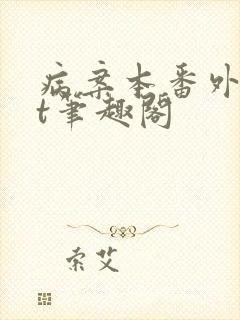 病案本番外
t笔趣阁
索艾